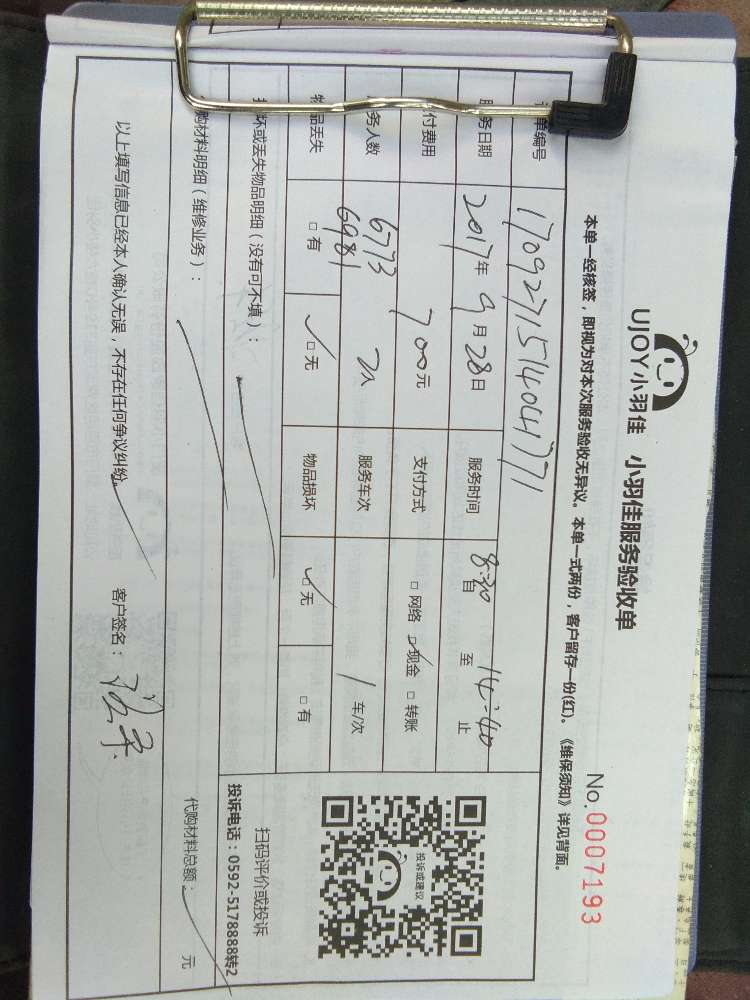 UJOY小羽佳 小羽佳服务验收单
No.0007193
本单一经核签，即视为对本次服务验收无异议。本单一式两份，客户留存一份(红)。《维保须知》详见背面。
单编号 170927151404771
服务日期 2017年9月28日 服务时间 8:30 自 至 14:40 止
付费用 700元 支付方式 □网络 ☑现金 □转账
务人数 6773 6981 2人 服务车次 1车/次
物品丢失 □有 ☑无 物品损坏 ☑无 □有
投诉或建议
扫码评价或投诉
投诉电话：0592-5178888转2
坏或丢失物品明细（没有可不填）：
购材料明细（维修业务）：
代购材料总额： 元
以上填写信息已经本人确认无误，不存在任何争议纠纷。 客户签名：